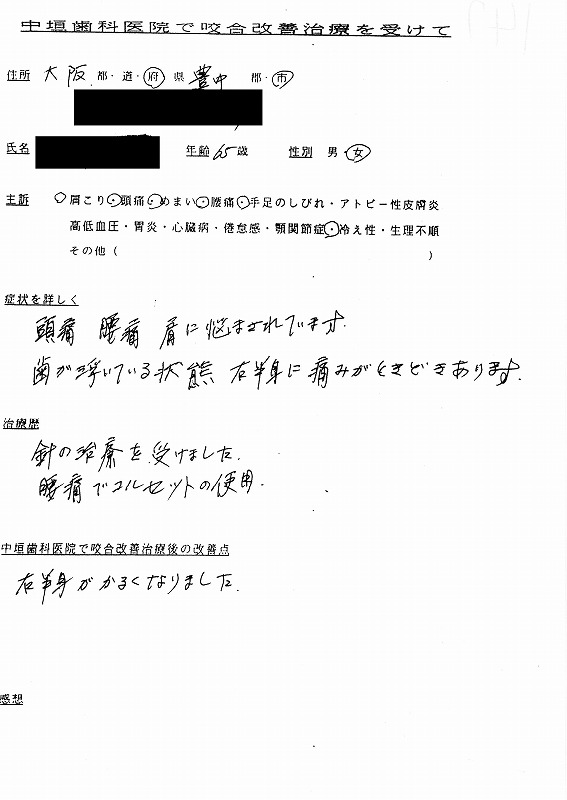 中垣歯科医院で咬合改善治療を受けて
住所 大阪 都・道・府 県 豊中 郡・市
氏名 年齢 65 歳 性別 男・女
主訴 肩こり・頭痛・めまい・腰痛・手足のしびれ・アトピー性皮膚炎
高低血圧・胃炎・心臓病・倦怠感・顎関節症・冷え性・生理不順
その他( )
症状を詳しく
頭痛 腰痛 肩に悩まされています.
歯が浮いている状態 右半身に痛みがときどきあります.
治療歴
針の治療を受けました.
腰痛でコルセットの使用.
中垣歯科医院で咬合改善治療後の改善点
右半身がかるくなりました.
感想